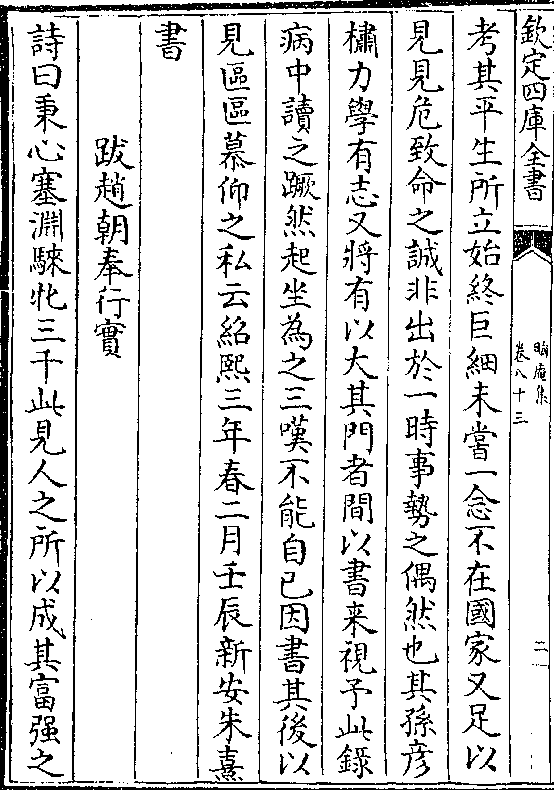 欽定四庫全書
晦庵集
卷八十三
二
考其平生所立始終巨細未嘗一念不在國家又足以
見見危致命之誠非出於一時事勢之偶然也其孫彦
橚力學有志又將有以大其門者間以書來視予此錄
病中讀之蹶然起坐為之三嘆不能自已因書其後以
見區區慕仰之私云紹熙三年春二月壬辰新安朱熹
書
跋趙朝奉行實
詩曰秉心塞淵騋牝三千此見人之所以成其富强之